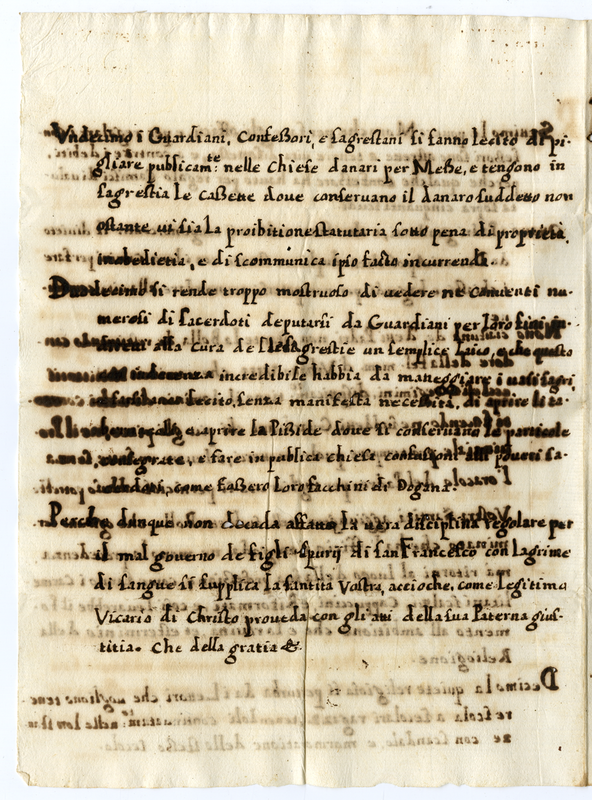 Vndecimo i Guardiani, Confessori, e sagrestani si fanno lecito di pi-
gliare publicam.te nelle chiese danari per Messe, e tengono in
sagrestia le cassette dove conservano il danaro suddetto non
ostante vi sia la proibitione statutaria sotto pena di proprietà,
inobedietia, e di scommunica ipso facto incurrenda.
Duodecimo si rende troppo mostruoso di vedere ne conventi nu-
merosi di sacerdoti deputarsi da Guardiani per loro fini
alla cura delle sagrestie un semplice Laico, e che questo
indecenza incredibile habbia da maneggiare i vasi sagri
lecito, senza manifesta necessità, di aprire li ta-
aprire la Pisside dove si conservano le particole
consegrate, e fare in publica chiesa confusioni alli poveri sa-
come fassero loro facchini di Dogana.
Perche dunque non decada affatto la vera disciplina regolare per
il mal governo de figli spurij di san Francesco con lagrime
di sangue si supplica la santità Vostra, accioche, come legitimo
Vicario di Christo proveda con gli atti della sua Paterna gius-
titia. Che della gratia &.